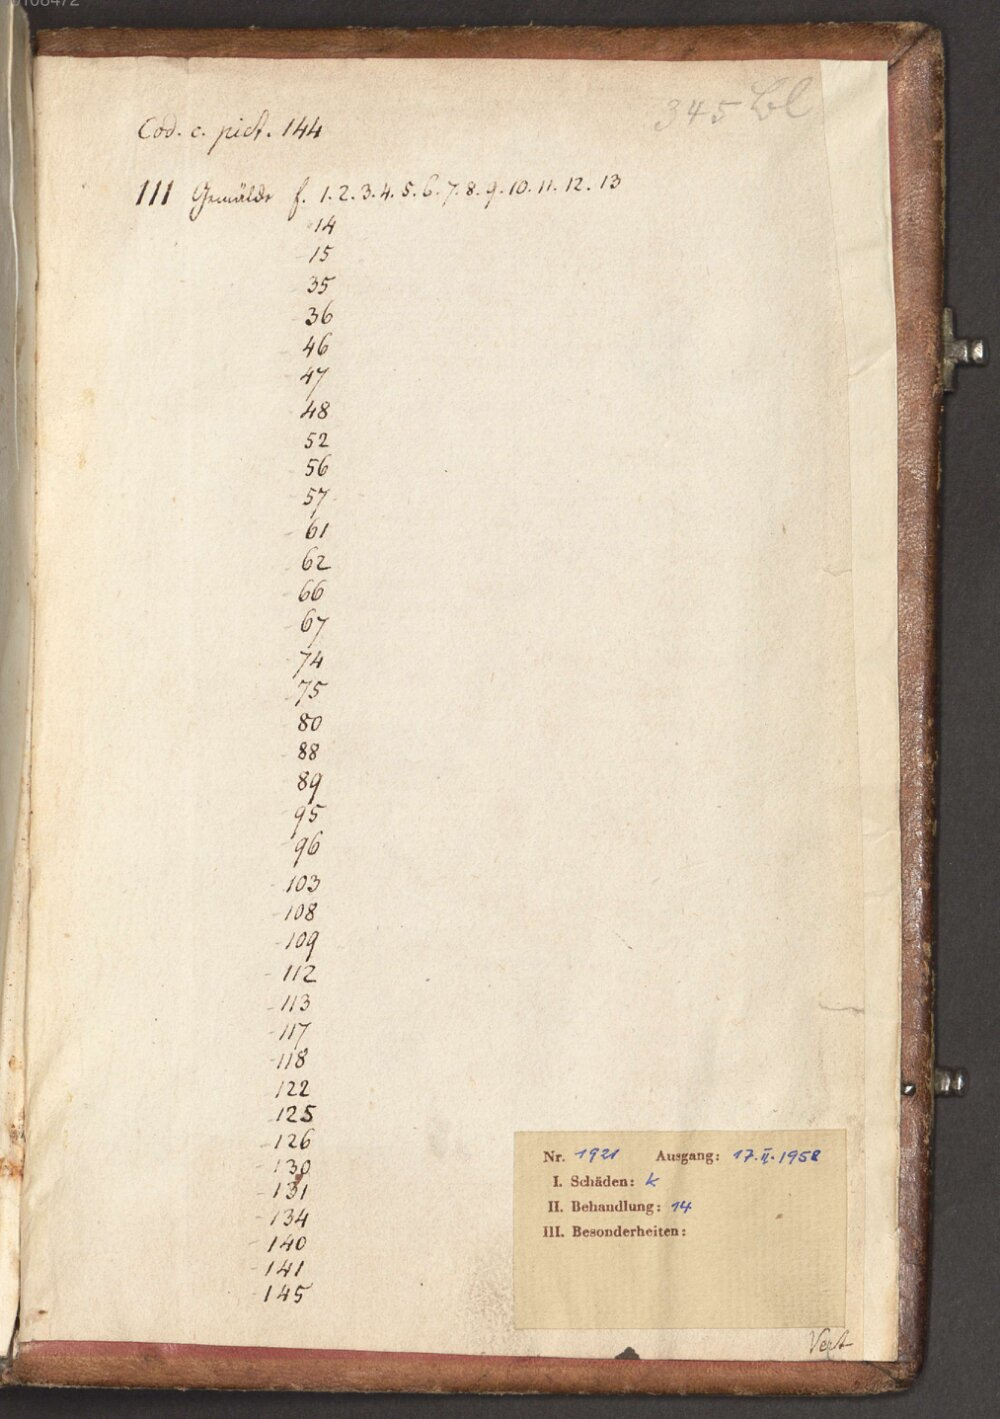 345 Bl
Cod. c. pict. 144
111 Gemälde f. 1. 2. 3. 4. 5. 6. 7. 8. 9. 10. 11. 12. 13
14
15
35
36
46
47
48
52
56
57
61
62
66
67
74
75
80
88
89
95
96
103
108
109
112
113
117
118
122
125
126
130
131
134
140
141
145
Nr. 1921 Ausgang: 17. II. 1958
I. Schäden: k
II. Behandlung: 14
III. Besonderheiten: